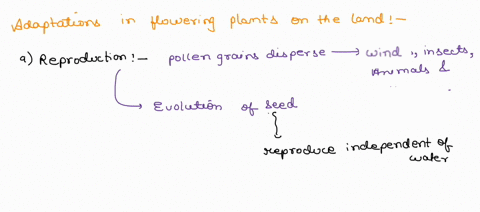 Adaptations in flowering plants on the land :-
a) Reproduction :- pollen grains disperse → wind ,, insects,
Animals &
→ Evolution of seed
reproduce independent of
water